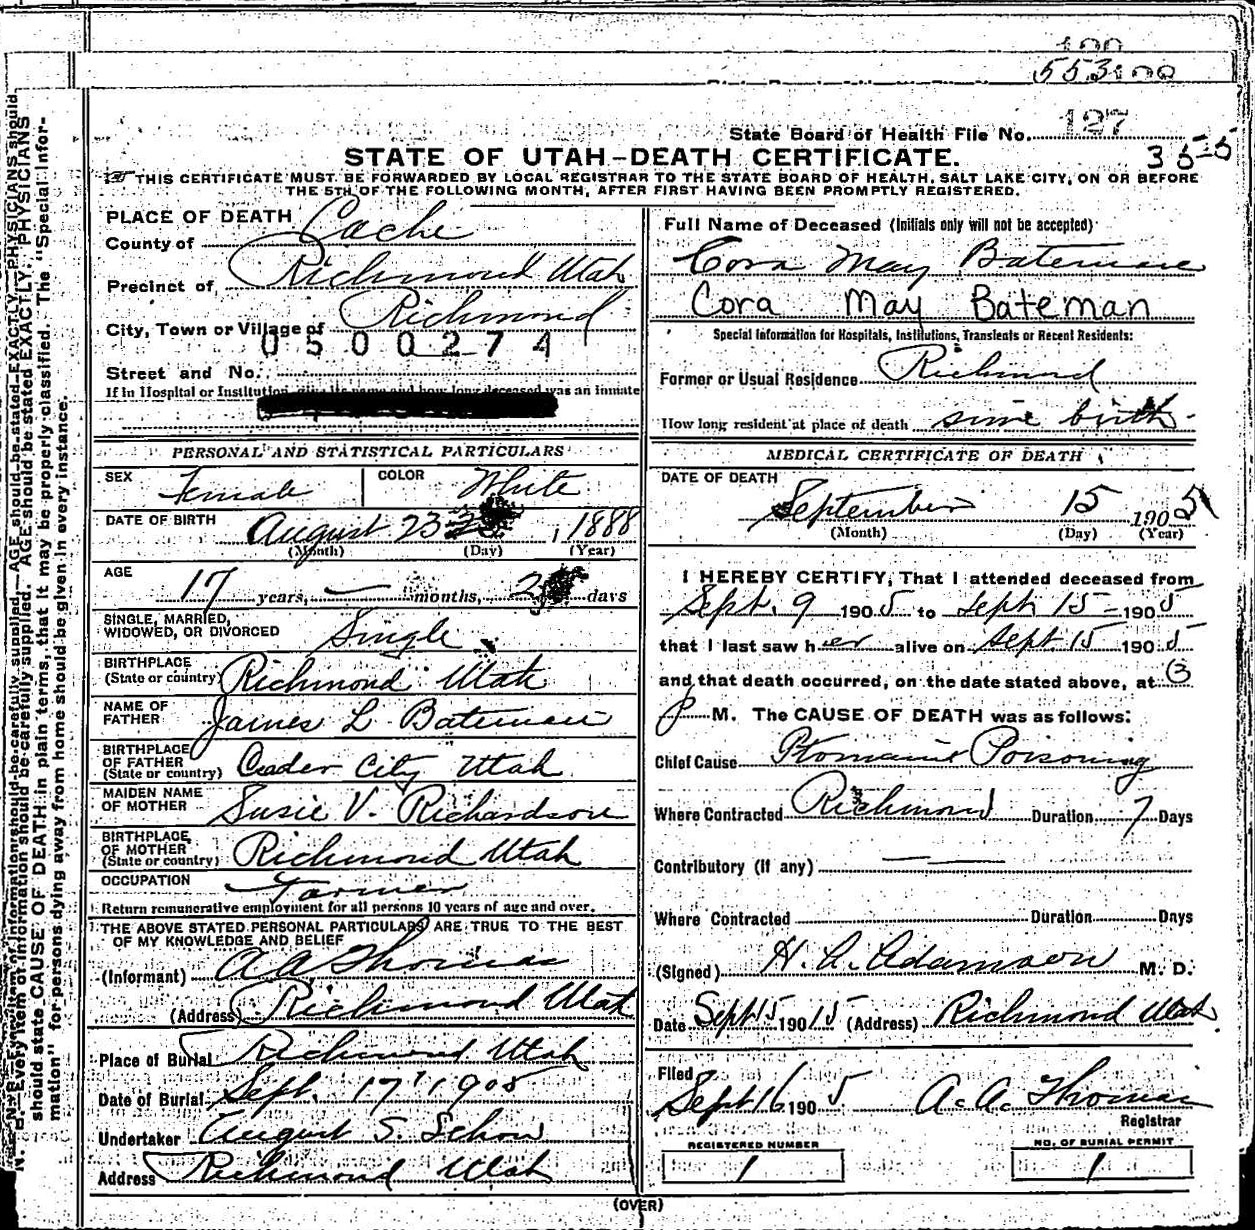 553
State Board of Health File No. 127
355
STATE OF UTAH-DEATH CERTIFICATE.
THIS CERTIFICATE MUST BE FORWARDED BY LOCAL REGISTRAR TO THE STATE BOARD OF HEALTH, SALT LAKE CITY, ON OR BEFORE
THE 5TH OF THE FOLLOWING MONTH, AFTER FIRST HAVING BEEN PROMPTLY REGISTERED.
PLACE OF DEATH
County of Cache
Precinct of Richmond Utah
City, Town or Village of Richmond
0500274
Street and No.
If in Hospital or Institution, was an inmate
PERSONAL AND STATISTICAL PARTICULARS
SEX Female COLOR White
DATE OF BIRTH August 23, 1888
(Month) (Day) (Year)
AGE
17 years, — months, 2 days
SINGLE, MARRIED,
WIDOWED, OR DIVORCED Single
BIRTHPLACE
(State or country) Richmond Utah
NAME OF
FATHER James L Bateman
BIRTHPLACE
OF FATHER
(State or country) Ceder City Utah
MAIDEN NAME
OF MOTHER Susie V. Richardson
BIRTHPLACE
OF MOTHER
(State or country) Richmond Utah
OCCUPATION Farmer
Return remunerative employment for all persons 10 years of age and over.
THE ABOVE STATED PERSONAL PARTICULARS ARE TRUE TO THE BEST
OF MY KNOWLEDGE AND BELIEF
(Informant) A A Thomas
(Address) Richmond Utah
Place of Burial Richmond Utah
Date of Burial Sept. 17 1905
Undertaker August S. Schow
Address Richmond Utah
Full Name of Deceased (Initials only will not be accepted)
Cora May Bateman
Cora May Bateman
Special Information for Hospitals, Institutions, Transients or Recent Residents:
Former or Usual Residence Richmond
How long resident at place of death since birth
MEDICAL CERTIFICATE OF DEATH
DATE OF DEATH
September 15 1905
(Month) (Day) (Year)
I HEREBY CERTIFY, That I attended deceased from
Sept. 9 1905 to Sept 15-1905
that I last saw her alive on Sept 15 1905
and that death occurred, on the date stated above, at 3
P M. The CAUSE OF DEATH was as follows:
Chief Cause Ptomaine Poisoning
Where Contracted Richmond Duration 7 Days
Contributory (If any)
Where Contracted Duration Days
(Signed) H. A. Adamson M. D.
Date Sept 15 1905 (Address) Richmond Utah
Filed
Sept 16 1905 A. A. Thomas
Registrar
REGISTERED NUMBER
1
NO. OF BURIAL PERMIT
1
(OVER)
N. B. Every item of information should be carefully supplied. AGE should be stated EXACTLY. PHYSICIANS
should state CAUSE OF DEATH in plain terms, that it may be properly classified. The "Special Infor-
mation" for persons dying away from home should be given in every instance.